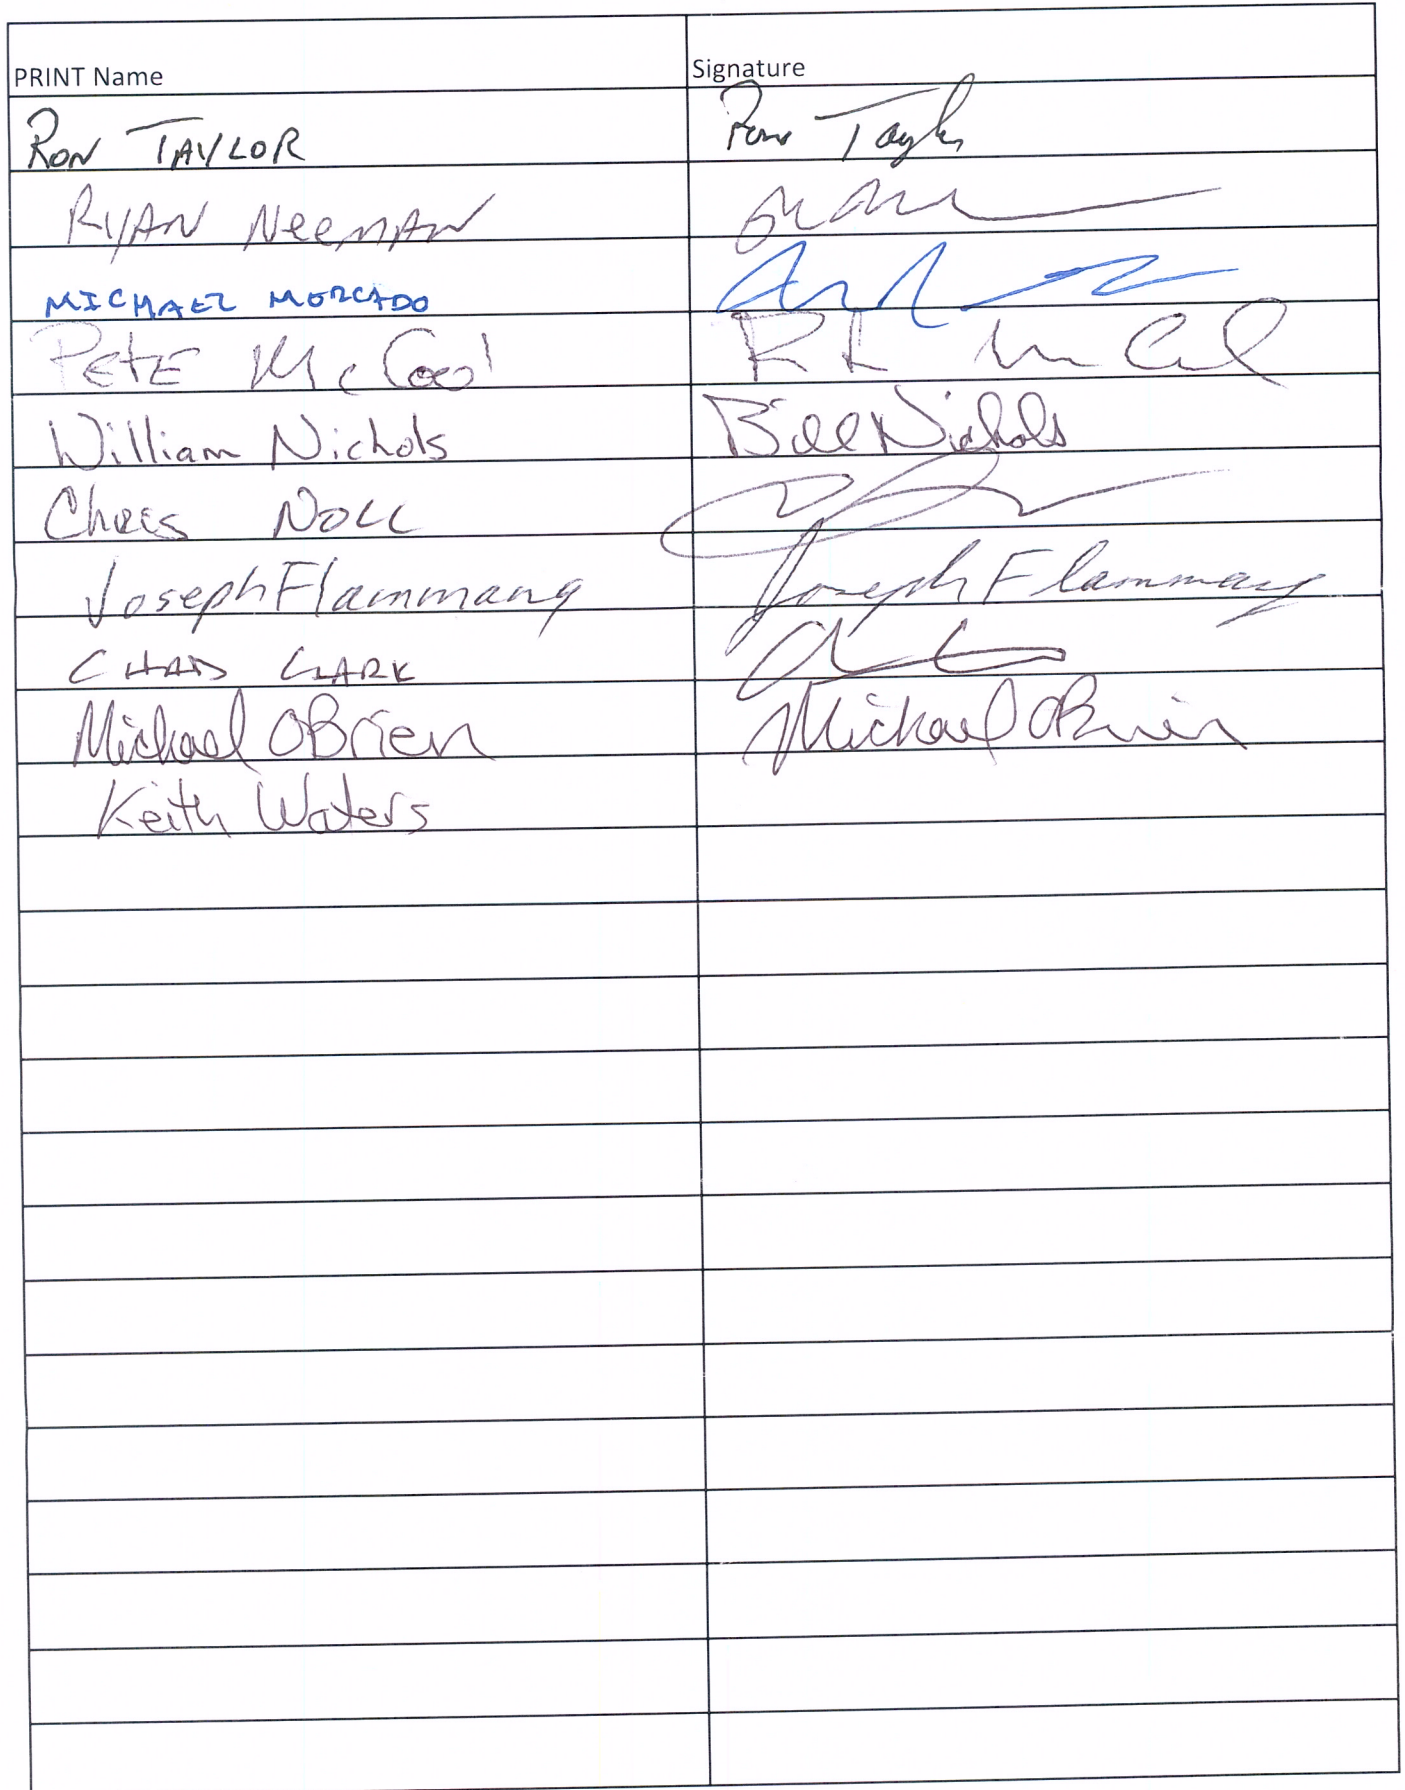 PRINT Name Signature
RON TAYLOR Ron Taylor
RYAN NeemAN
MICHAEL MERCADO
PETE McCool
William Nichols Bill Nichols
Chris NOLL
Joseph Flammang Joseph Flammang
CHAD CLARK
Michael OBrien Michael OBrien
Keith Waters